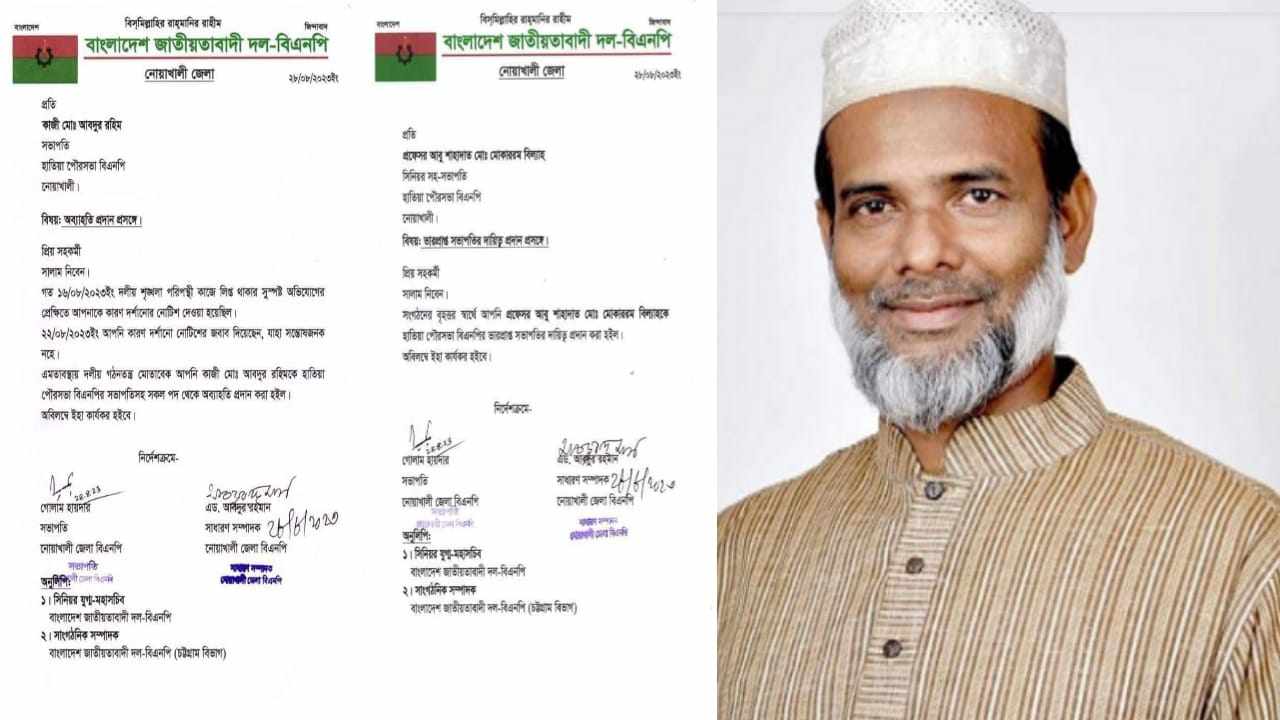 বাংলাদেশ
বিস্‌মিল্লাহির রাহ্‌মানির রাহীম
জিন্দাবাদ
বাংলাদেশ জাতীয়তাবাদী দল-বিএনপি
নোয়াখালী জেলা
২৮/০৮/২০২৩ইং
প্রতি
কাজী মোঃ আবদুর রহিম
সভাপতি
হাতিয়া পৌরসভা বিএনপি
নোয়াখালী।
বিষয়: অব্যাহতি প্রদান প্রসঙ্গে।
প্রিয় সহকর্মী
সালাম নিবেন।
গত ১৬/০৮/২০২৩ইং দলীয় শৃঙ্খলা পরিপন্থী কাজে লিপ্ত থাকার সুস্পষ্ট অভিযোগের
প্রেক্ষিতে আপনাকে কারণ দর্শানোর নোটিশ দেওয়া হয়েছিল।
২২/০৮/২০২৩ইং আপনি কারণ দর্শানো নোটিশের জবাব দিয়েছেন, যাহা সন্তোষজনক
নহে।
এমতাবস্থায় দলীয় গঠনতন্ত্র মোতাবেক আপনি কাজী মোঃ আবদুর রহিমকে হাতিয়া
পৌরসভা বিএনপির সভাপতিসহ সকল পদ থেকে অব্যাহতি প্রদান করা হইল।
অবিলম্বে ইহা কার্যকর হইবে।
নির্দেশক্রমে-
২৮.৮.২৩
গোলাম হায়দার
সভাপতি
নোয়াখালী জেলা বিএনপি
সভাপতি
নোয়াখালী জেলা বিএনপি
এড. আবদুর রহমান
সাধারণ সম্পাদক ২৮/৮/২০২৩
নোয়াখালী জেলা বিএনপি
সাধারণ সম্পাদক
নোয়াখালী জেলা বিএনপি
অনুলিপি:
১। সিনিয়র যুগ্ম-মহাসচিব
বাংলাদেশ জাতীয়তাবাদী দল-বিএনপি
২। সাংগঠনিক সম্পাদক
বাংলাদেশ জাতীয়তাবাদী দল-বিএনপি (চট্টগ্রাম বিভাগ)
বাংলাদেশ
বিস্‌মিল্লাহির রাহ্‌মানির রাহীম
জিন্দাবাদ
বাংলাদেশ জাতীয়তাবাদী দল-বিএনপি
নোয়াখালী জেলা
২৮/০৮/২০২৩ইং
প্রতি
প্রফেসর আবু শাহাদাত মোঃ মোকাররম বিল্যাহ
সিনিয়র সহ-সভাপতি
হাতিয়া পৌরসভা বিএনপি
নোয়াখালী।
বিষয়: ভারপ্রাপ্ত সভাপতির দায়িত্ব প্রদান প্রসঙ্গে।
প্রিয় সহকর্মী
সালাম নিবেন।
সংগঠনের বৃহত্তর স্বার্থে আপনি প্রফেসর আবু শাহাদাত মোঃ মোকাররম বিল্যাহকে
হাতিয়া পৌরসভা বিএনপির ভারপ্রাপ্ত সভাপতির দায়িত্ব প্রদান করা হইল।
অবিলম্বে ইহা কার্যকর হইবে।
নির্দেশক্রমে-
২৮.৮.২৩
গোলাম হায়দার
সভাপতি
নোয়াখালী জেলা বিএনপি
সভাপতি
নোয়াখালী জেলা বিএনপি
এড. আবদুর রহমান
সাধারণ সম্পাদক ২৮/৮/২০২৩
নোয়াখালী জেলা বিএনপি
সাধারণ সম্পাদক
নোয়াখালী জেলা বিএনপি
অনুলিপি:
১। সিনিয়র যুগ্ম-মহাসচিব
বাংলাদেশ জাতীয়তাবাদী দল-বিএনপি
২। সাংগঠনিক সম্পাদক
বাংলাদেশ জাতীয়তাবাদী দল-বিএনপি (চট্টগ্রাম বিভাগ)